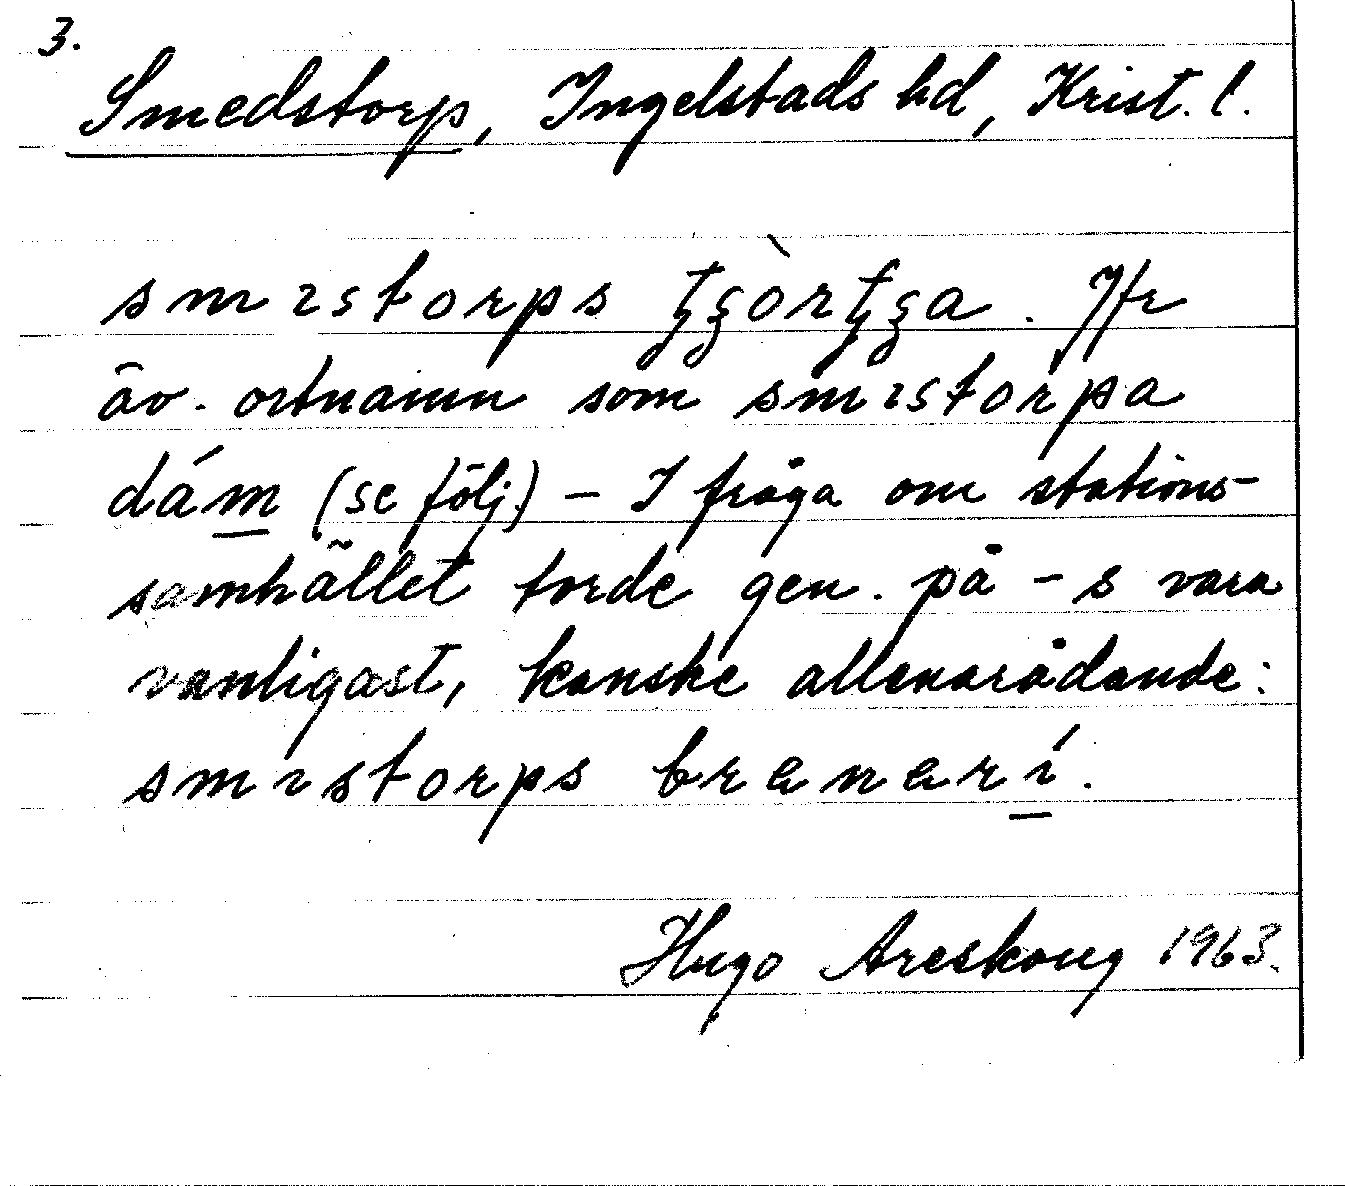 3.
Smedstorp, Ingelstads hd, Krist. l.
smıstorps ʈʂòrʈʂa. Jfr
äv. ortnamn som smıstorpa
dám̲ (se följ.) – I fråga om stations-
samhället torde gen. på -s vara
vanligast, kanske allenarådande:
smıstorps brenerí̲.
Hugo Areskoug 1963.